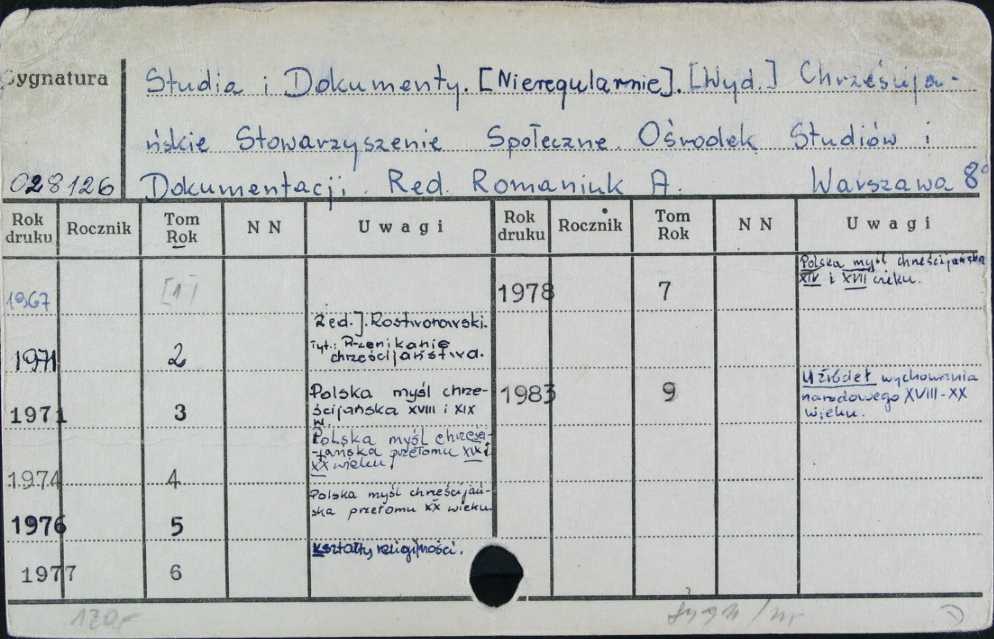 Sygnatura
Studia i Dokumenty. [Nieregularnie]. [Wyd.] Chrześcija-
ńskie Stowarzyszenie Społeczne. Ośrodek Studiów i
028126 Dokumentacji. Red. Romaniuk A. Warszawa 8°
Rok druku Rocznik Tom Rok N N Uwagi Rok druku Rocznik Tom Rok N N Uwagi
1967 [1]
1971 2 Red.]. Rostworowski.
Tyt.: Przenikanie
chrześcijaństwa.
1971 3 Polska myśl chrze-
ścijańska XVIII i XIX
w.
1974 4 Polska myśl chrześci-
jańska przełomu XIX i
XX wieku
1976 5 Polska myśl chrześcijań-
ska przełomu XX wieku.
1977 6 Kształty religijności.
1978 7 Polska myśl chrześcijańska
XIV i XVII wieku.
1983 9 U źródeł wychowania
narodowego XVIII-XX
wieku.